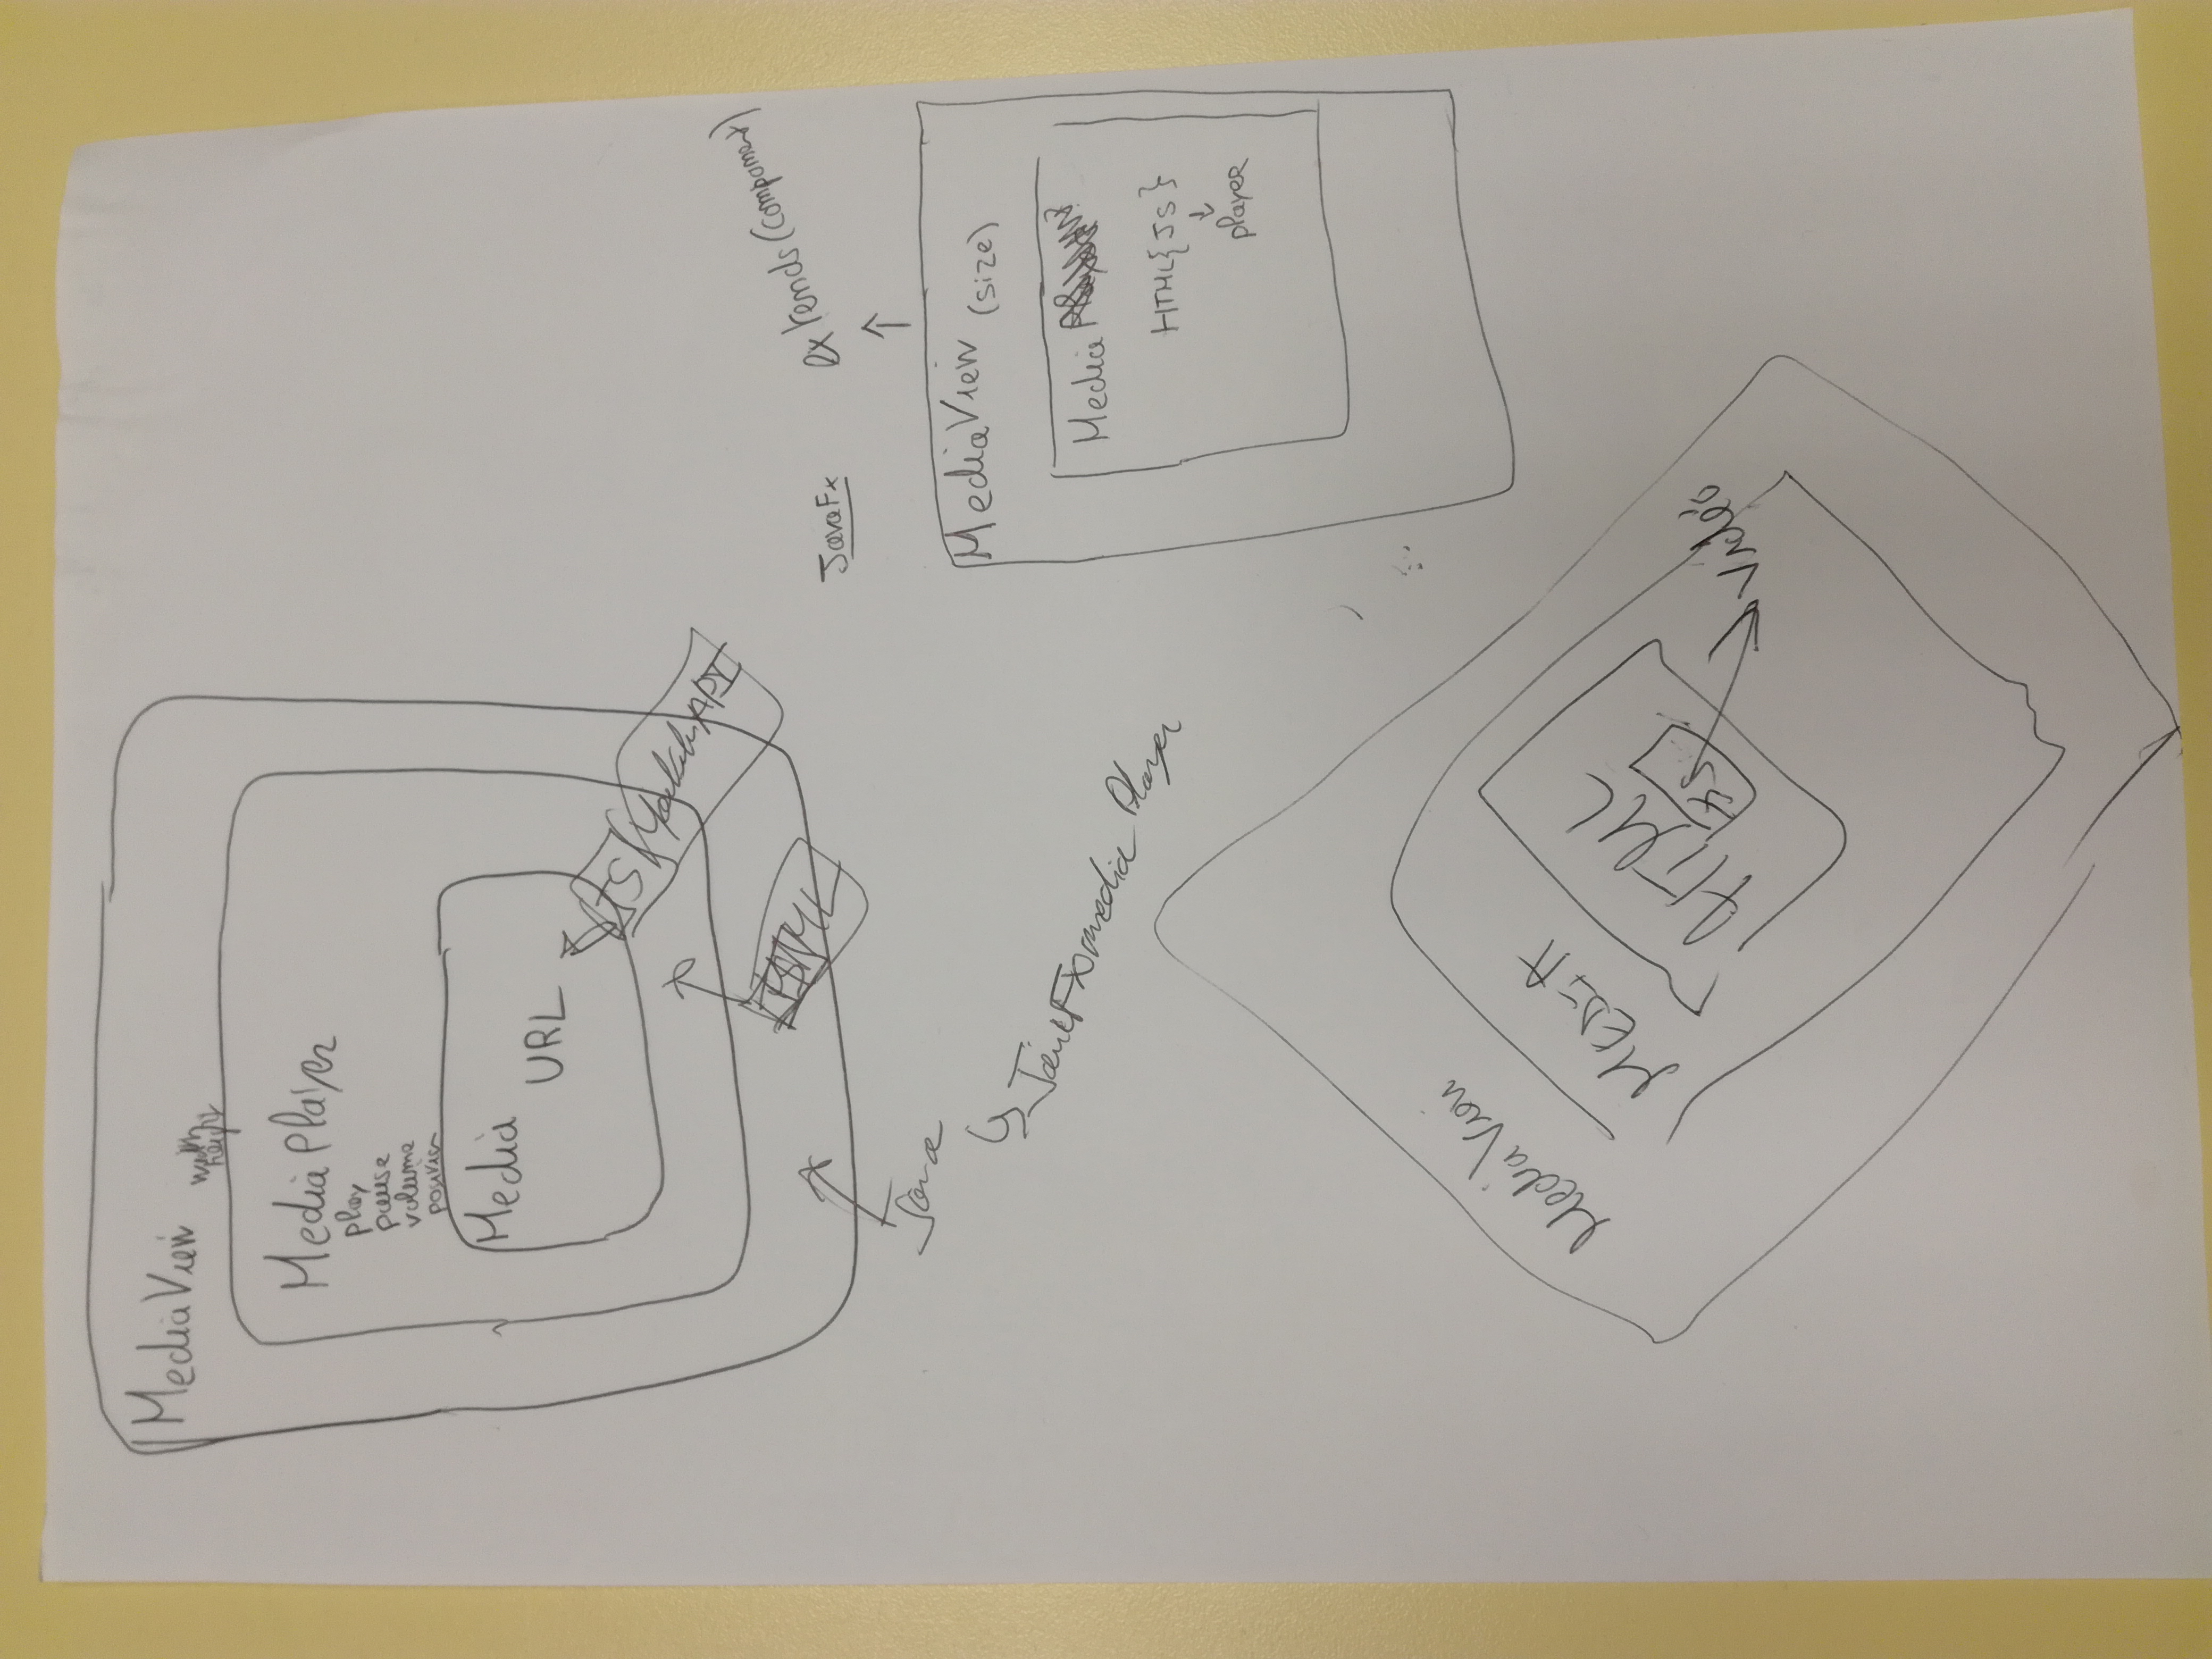 MediaView
width
height
MediaPlayer
play
pause
volume
position
Media
URL
JS / Youtube API
HTML
Java
JavaFx media Player
JavaFx
extends (component)
MediaView (size)
Media
HTML{JS}
player
MediaView
MEDIA
HTML
JS
vidéo